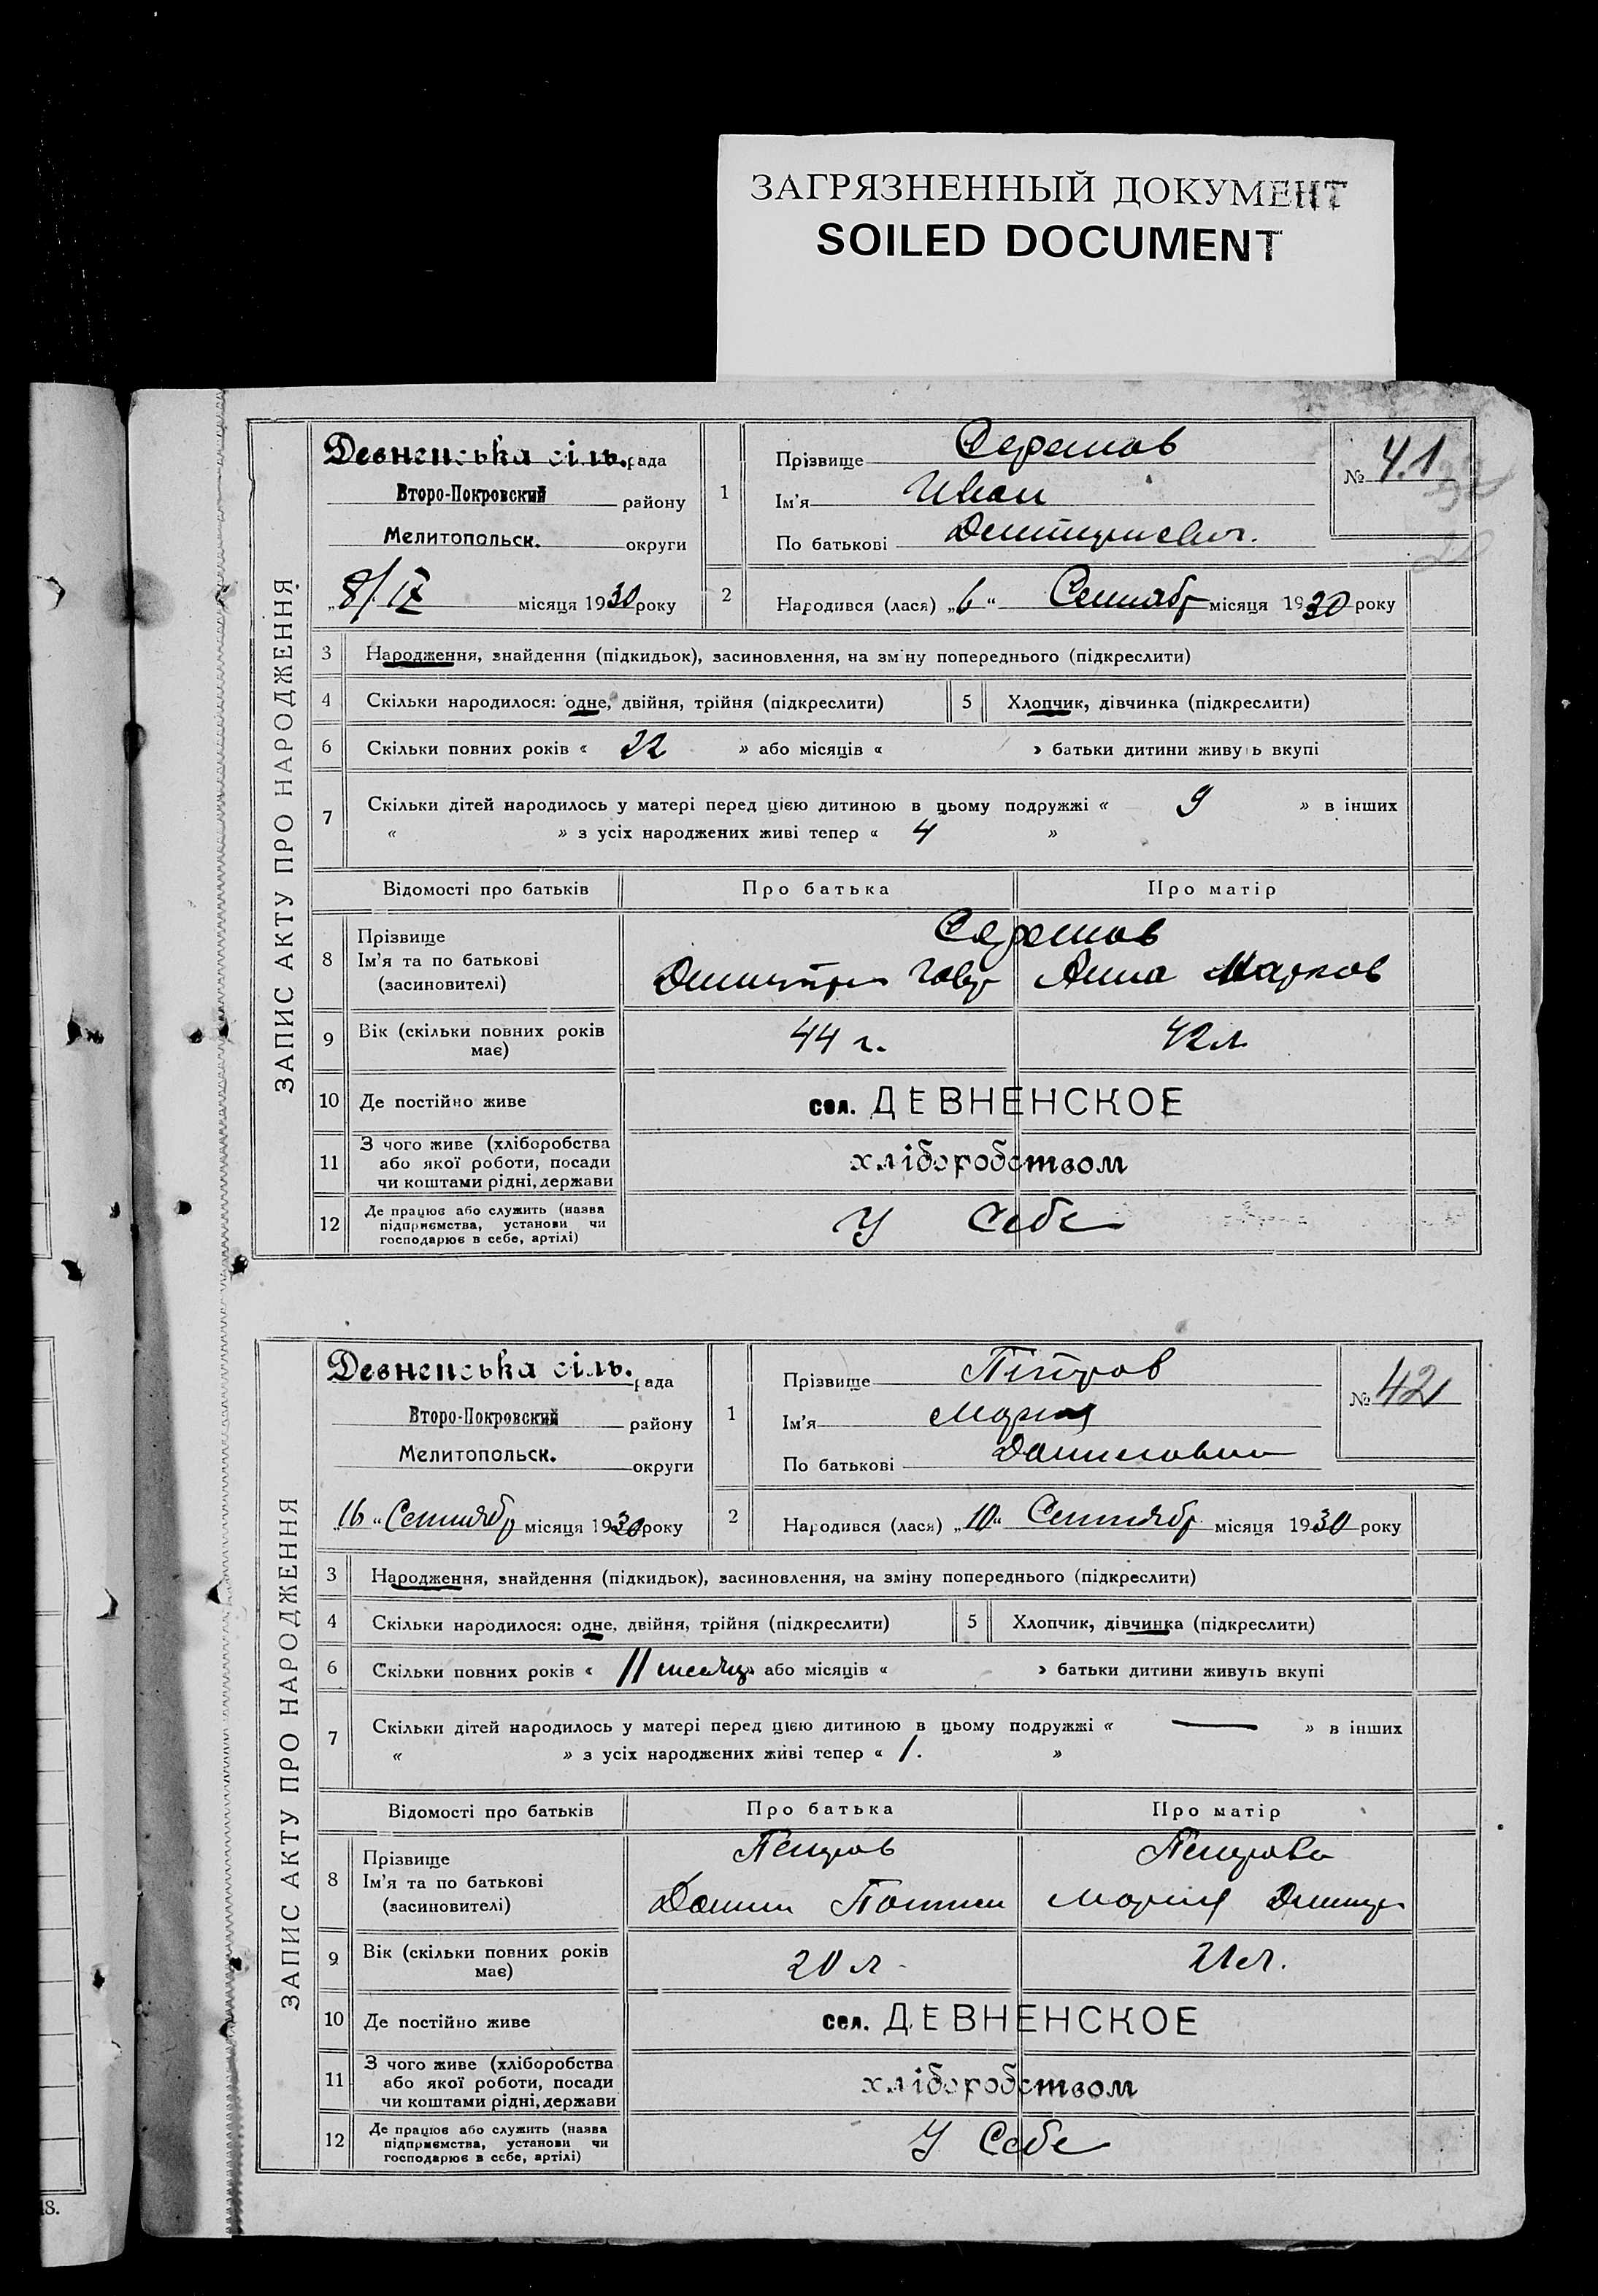 ЗАГРЯЗНЕННЫЙ ДОКУМЕНТ
SOILED DOCUMENT
ЗАПИС АКТУ ПРО НАРОДЖЕННЯ
Девненська сіль. рада
Второ-Покровский району
Мелитопольск. округи
„8/IX місяця 1930 року
1
Прізвище
Ім'я Иван
По батькові Дмитриевич.
№ 41
2 Народився (лася) „6“ Сентябр місяця 1930 року
3 Народження, знайдення (підкидьок), засиновлення, на зміну попереднього (підкреслити)
4 Скільки народилося: одне, двійня, трійня (підкреслити) 5 Хлопчик, дівчинка (підкреслити)
6 Скільки повних років « 22 » або місяців « » батьки дитини живуть вкупі
7 Скільки дітей народилось у матері перед цією дитиною в цьому подружжі « 9 » в інших
« » з усіх народжених живі тепер « 4 »
Відомості про батьків Про батька Про матір
8 Прізвище
Ім'я та по батькові
(засиновителі)
Анна Марков
9 Вік (скільки повних років має) 44 г. 42 л
10 Де постійно живе сел. ДЕВНЕНСКОЕ
11 З чого живе (хліборобства
або якої роботи, посади
чи коштами рідні, держави
хліборобством
12 Де працює або служить (назва
підприємства, установи чи
господарює в себе, артілі)
У Себе
ЗАПИС АКТУ ПРО НАРОДЖЕННЯ
Девненська сіль. рада
Второ-Покровский району
Мелитопольск. округи
„16“ Сентябр місяця 1930 року
1
Прізвище Петров
Ім'я Мария
По батькові
№ 42
2 Народився (лася) „10“ Сентябр. місяця 1930 року
3 Народження, знайдення (підкидьок), засиновлення, на зміну попереднього (підкреслити)
4 Скільки народилося: одне, двійня, трійня (підкреслити) 5 Хлопчик, дівчинка (підкреслити)
6 Скільки повних років « 11 месяц » або місяців « » батьки дитини живуть вкупі
7 Скільки дітей народилось у матері перед цією дитиною в цьому подружжі « — » в інших
« » з усіх народжених живі тепер « 1. »
Відомості про батьків Про батька Про матір
8 Прізвище
Ім'я та по батькові
(засиновителі)
Петров Петрова
Мария
9 Вік (скільки повних років має) 20 л. 21 л.
10 Де постійно живе сел. ДЕВНЕНСКОЕ
11 З чого живе (хліборобства
або якої роботи, посади
чи коштами рідні, держави
хліборобством
12 Де працює або служить (назва
підприємства, установи чи
господарює в себе, артілі)
У Себе
18.